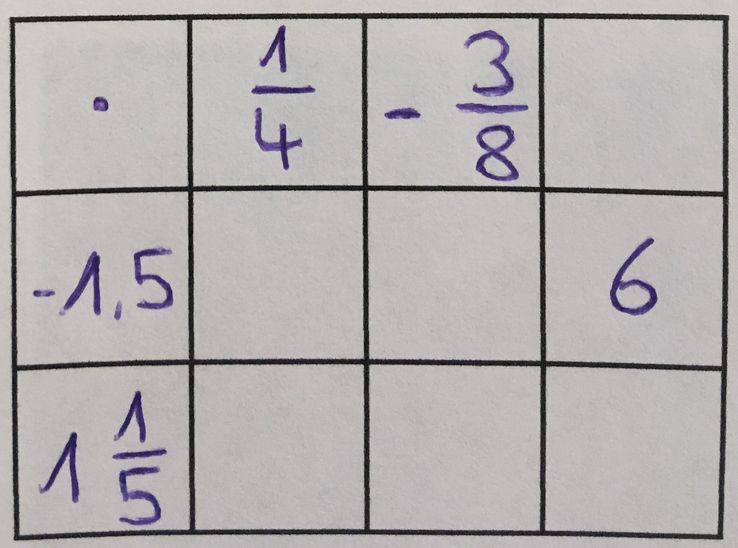 · 1/4 - 3/8
-1,5 6
1 1/5